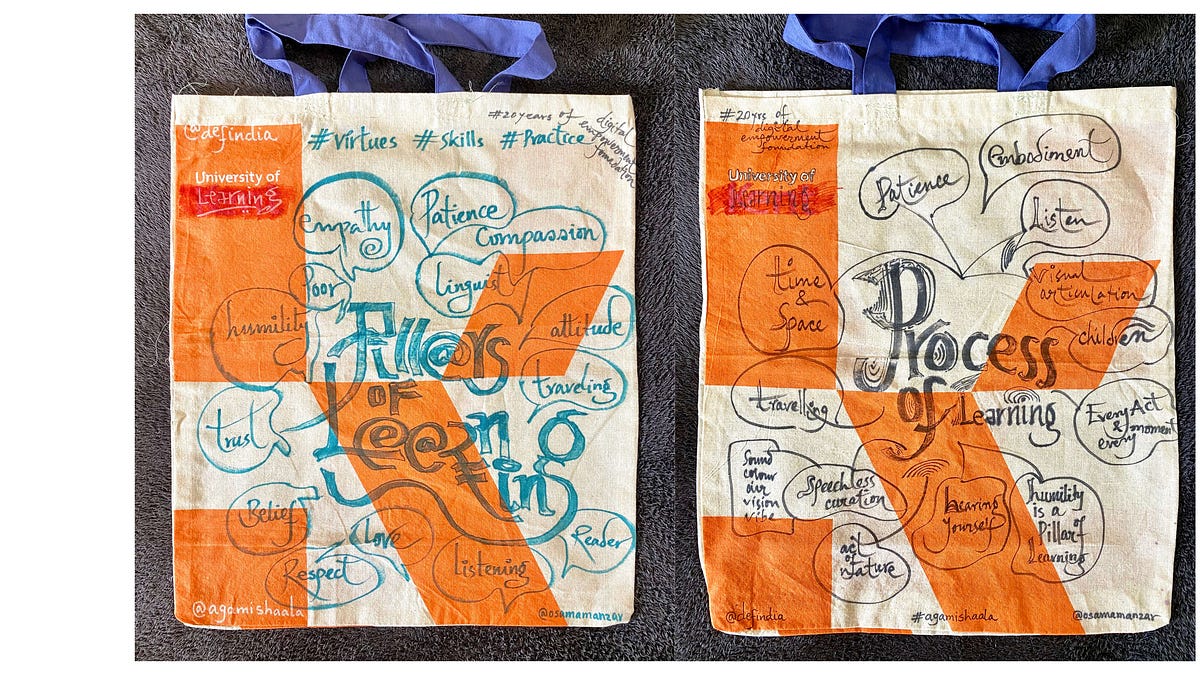 @defindia
#20years of
digital
empowerment
foundation
#Virtues #Skills #Practice
University of
Learning
empathy
Patience
Compassion
Poor
Linguist
humility
Pill@rs
attitude
OF
traveling
trust
Le@rning
Belief
Love
Reader
Respect
listening
@agamishaala
@osamamanzar
#20yrs of
digital
empowerment
foundation
University of
Learning
Patience
Embodiment
Listen
time
&
Space
visual
articulation
Process
children
of
Learning
travelling
Every Act
& moment
every
Sound
colour
our
vision
vibe
Speechless
curation
hearing
Yourself
humility
is a
Pillar of
Learning
act
of
nature
@defindia
#agamishaala
@osamamanzar